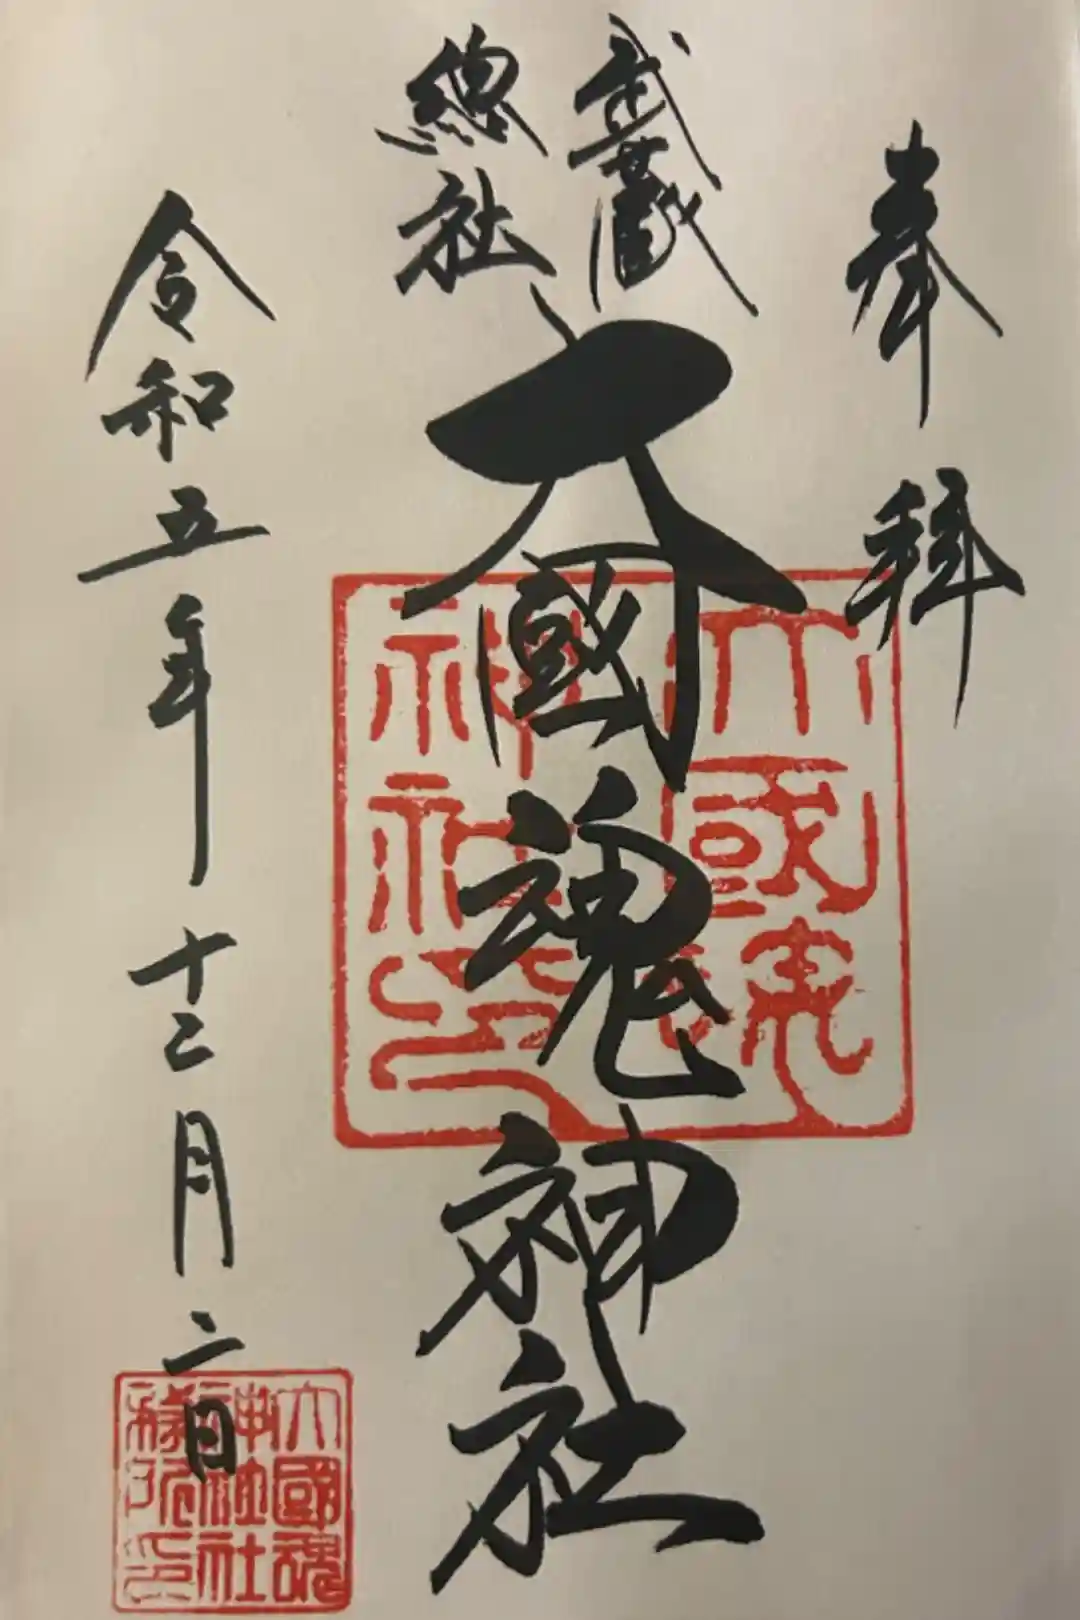 奉拜
武蔵
總社
大國魂神社
令和五年十二月二日
大國魂
神社印
大國魂
神社社
務所印